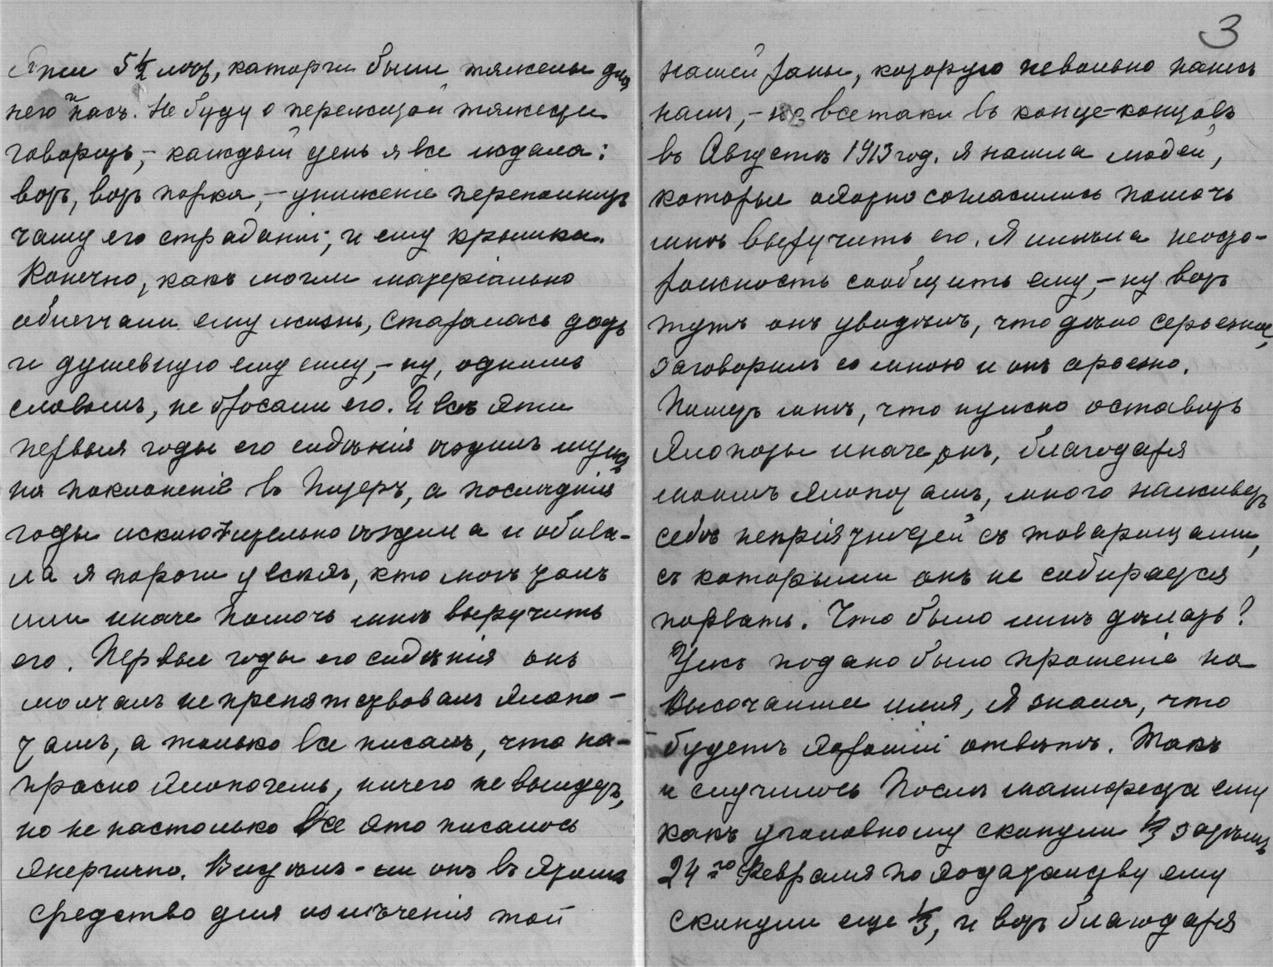 Эти 5½ лѣт, каторги были тяжелы для
него и насъ. Не буду о пережитой тяжести
говорить, – каждый день я все ждала:
вот, вот порка, – униженіе переполнит
чашу его страданій, и ему крышка.
Конечно, какъ могли матеріально
облегчали ему жизнь, старалась дать
и душевную ему силу, – ну, однимъ
словомъ, не бросали его. И всѣ эти
первыя годы его сидѣнія ѣздилъ мужъ
на поклоненіе въ Питеръ, а послѣднія
годы исключительно ѣздила и обива-
ла я пороги у всѣхъ, кто могъ такъ
или иначе помочь мнѣ выручить
его. Первые годы его сидѣнія онъ
молчалъ не препятствовалъ хлопо-
тамъ, а только все писалъ, что на-
прасно хлопочешь, ничего не выйдет,
но не настолько все это писалось
энергично. Видѣлъ-ли онъ въ этомъ
средство для излѣченія той
3
нашей раны, которую невольно нанесъ
намъ, – но все таки въ конце-концовъ
въ Августѣ 1913 год. я нашла людей,
которые охотно согласились помочь
мнѣ выручить его. Я имѣла неосто-
рожность сообщить ему, – ну вот
тутъ онъ увидѣлъ, что дѣло серьезное,
заговорилъ со мною и онъ серьезно.
Пишет мнѣ, что нужно оставить
хлопоты иначе онъ, благодаря
моимъ хлопотамъ, много наживетъ
себѣ непріятностей съ товарищами,
съ которыми онъ не собирается
порвать. Что было мнѣ дѣлать?
Ужъ подано было прошеніе на
Высочайшее имя, я знала, что
будетъ хорошій отвѣтъ. Такъ
и случилось Послѣ манифеста ему
какъ уголовному скинули ⅓ затѣмъ
24го Февраля по ходатайству ему
скинули еще ⅓, и вотъ благодаря